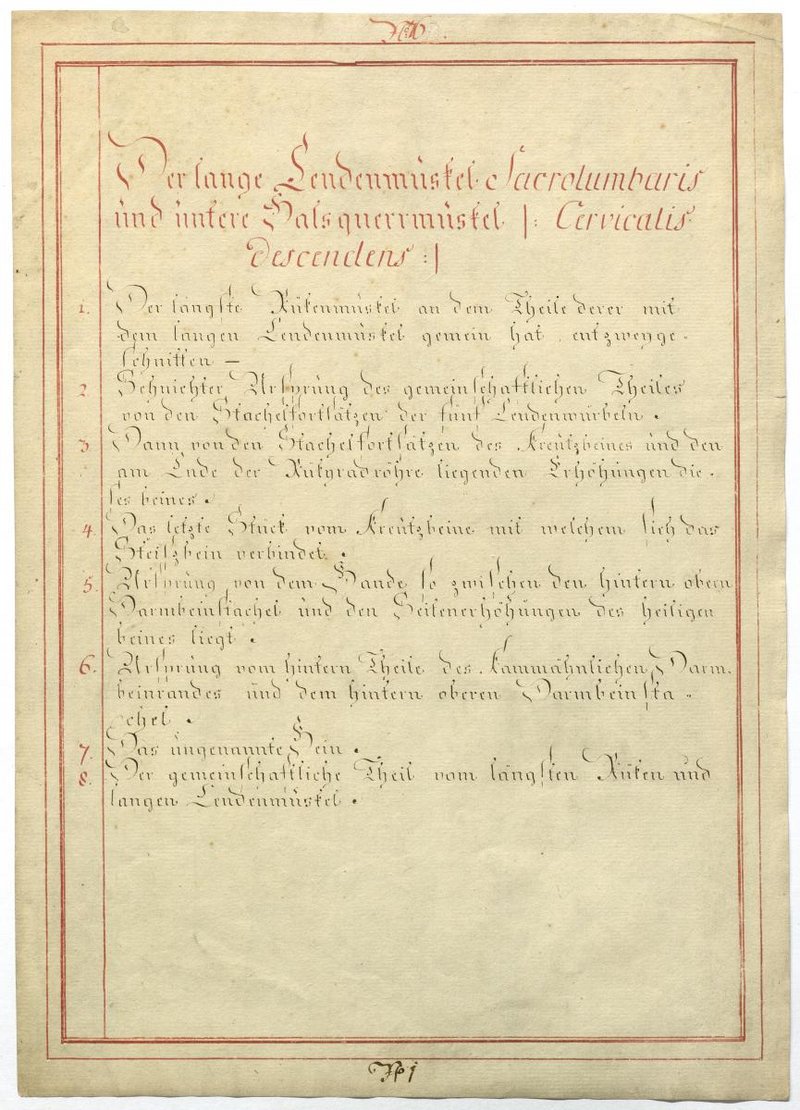 Der lange Lendenmüskel Sacrolumbaris
und untere Halsquerrmüskel |: Cervicalis
descendens :|
1. Der längste Rükenmüskel an dem Theile derer mit
dem langen Lendenmüskel gemein hat, entzweyge-
schnitten —
2 Sehnichter Ursprüng des gemeinschaftlichen Theiles
von den Stachelfortsätzen der fünf Lendenwürbeln.
3. Dann von den Stachelfortsätzen des Kreützbeines und den
am Ende der Rükgradröhre liegenden Erhöhüngen die-
ses beines.
4. Das letzte Stück vom Kreützbeine mit welchem sich das
Steißbein verbindet.
5. Ursprüng von dem Bande so zwischen den hintern obern
Darmbeinstachel und den Seitenerhöhüngen des heiligen
beines liegt.
6. Ursprüng vom hintern Theile des kammähnlichen Darm-
beinrandes und dem hintern oberen Darmbeinsta-
chel.
7. Das üngenannte Bein.
8. Der gemeinschaftliche Theil vom längsten Rüken und
langen Lendenmüskel.
No 1